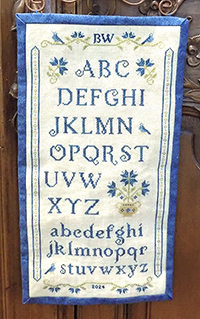 BW
ABC
DEFGHI
JKLMN
OPQRST
UVW
XYZ
abcdefghi
jklmnopqr
stuvwxyz
2024